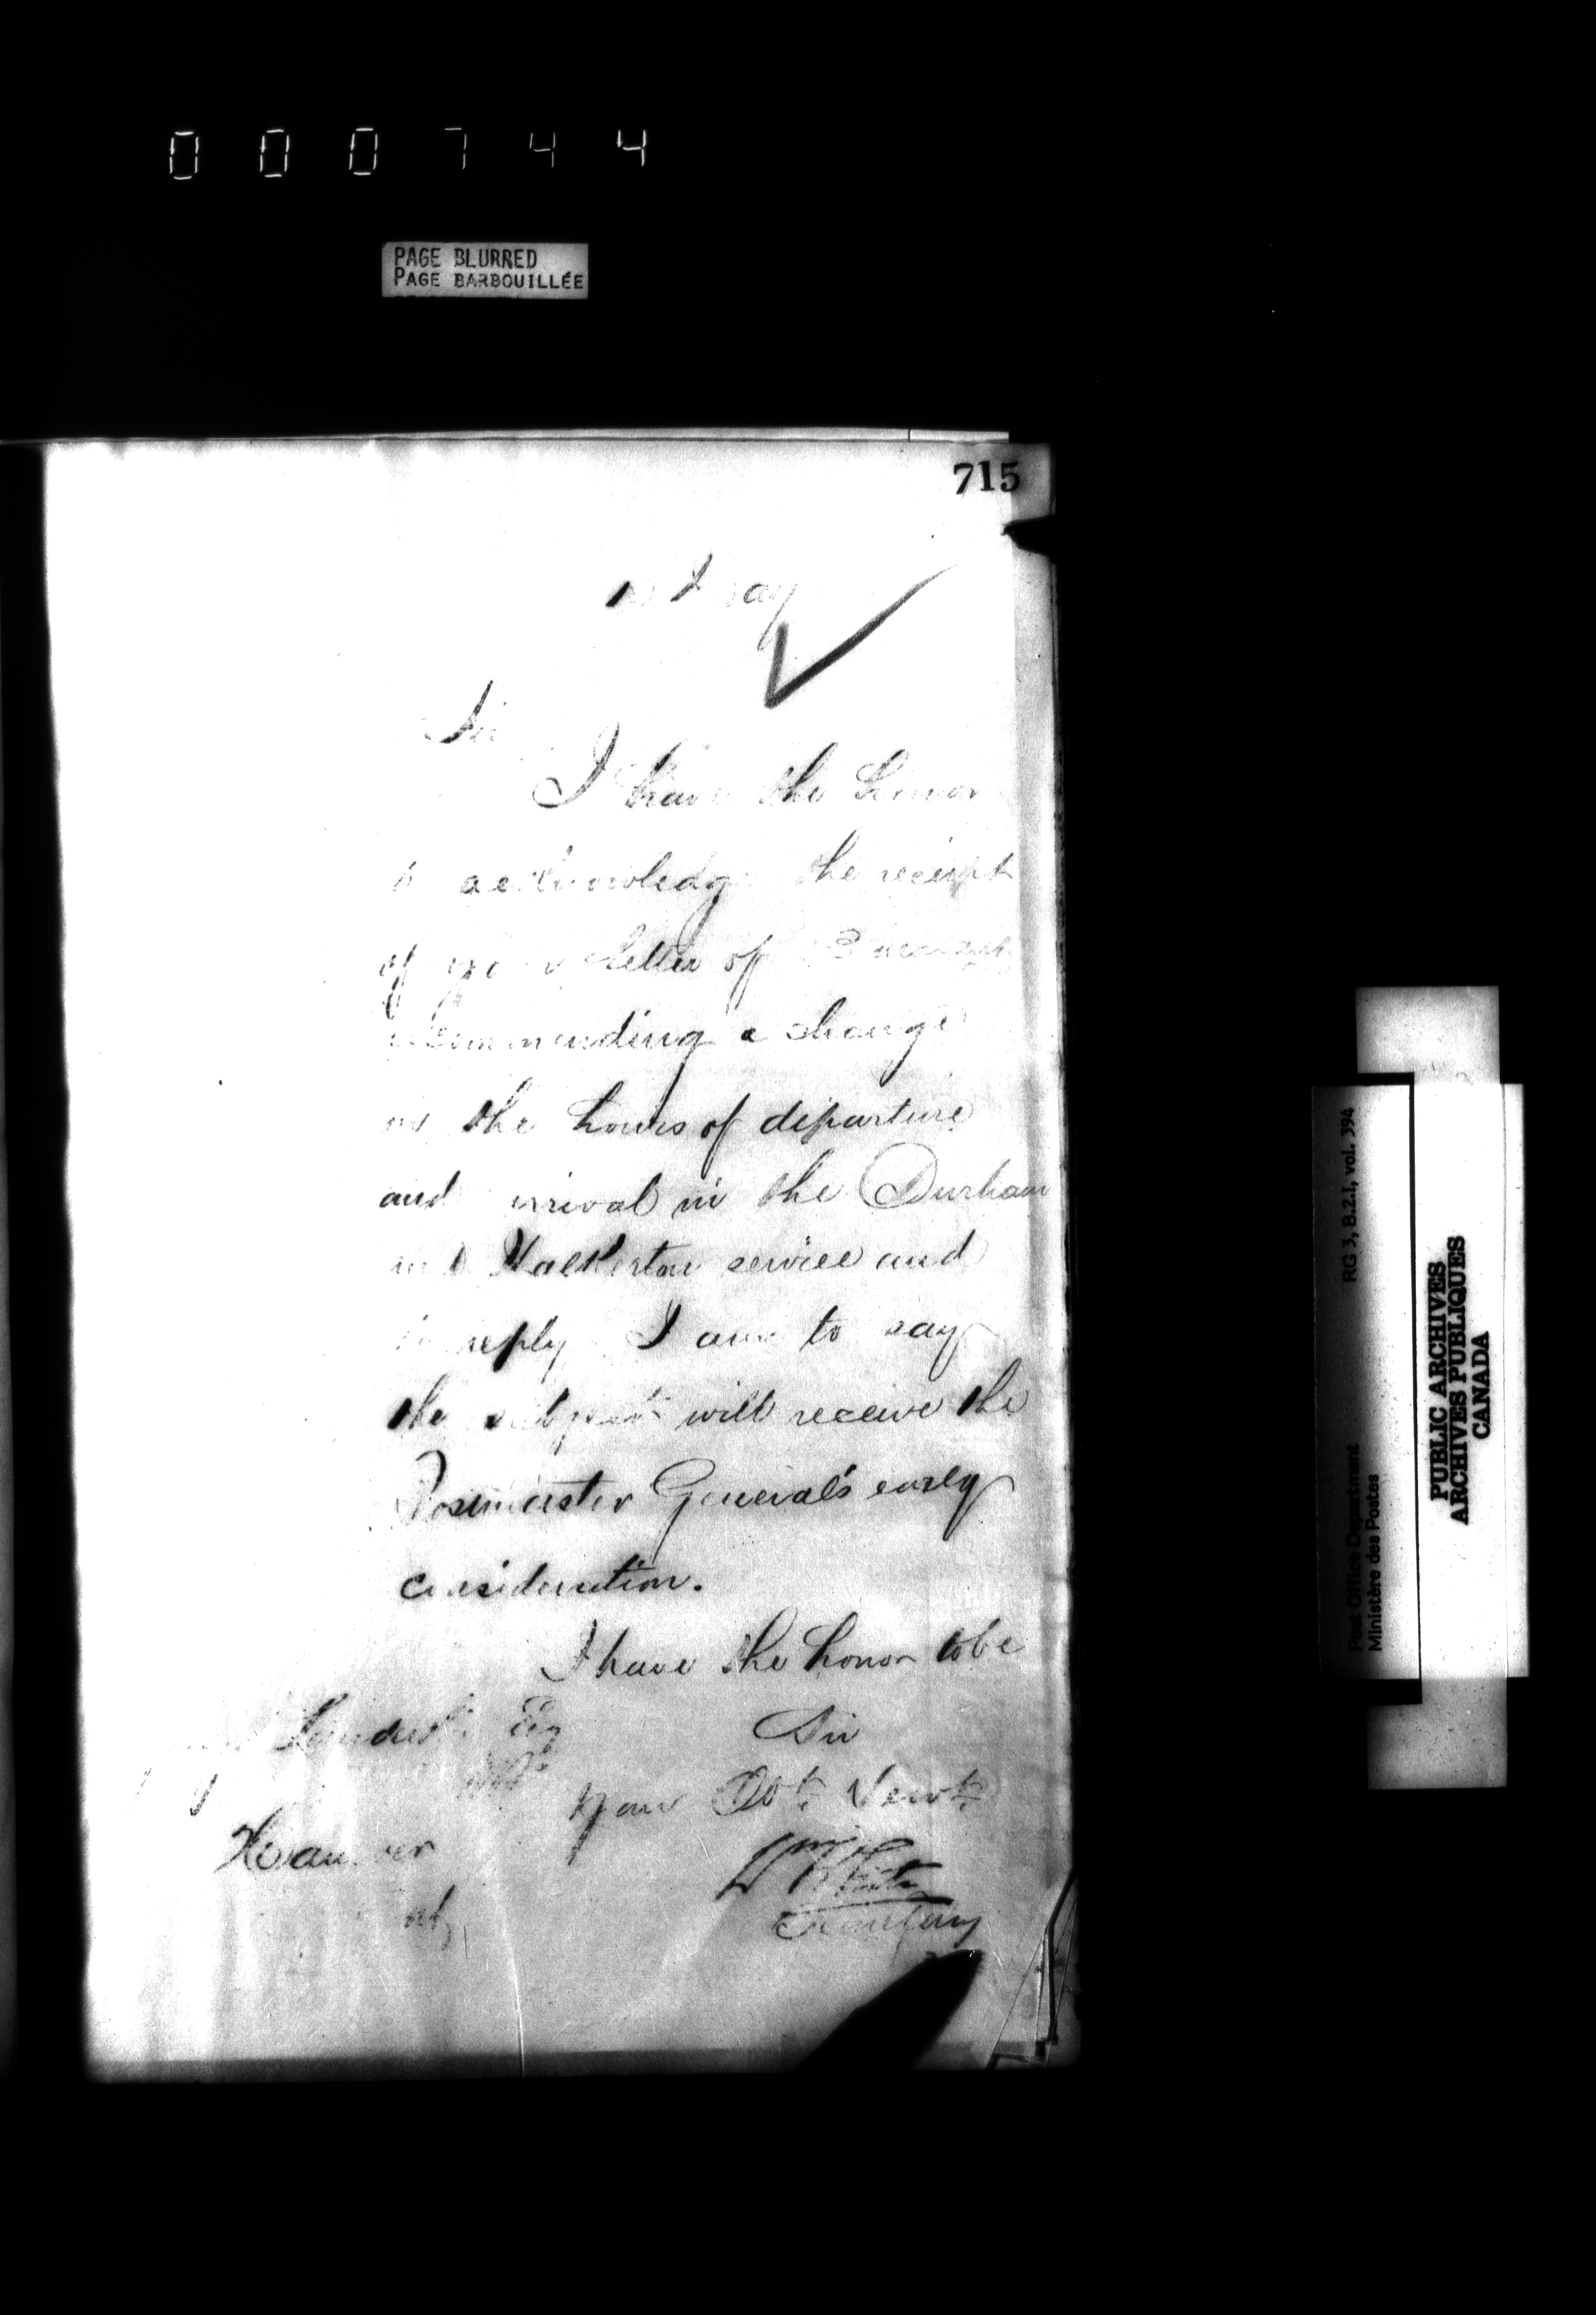 000744
PAGE BLURRED
PAGE BARBOUILLÉE
715
Sir
I have the honor
to acknowledge the receipt
of your letter of
recommending a change
in the hours of departure
and arrival in the Durham
and Walkerton service and
in reply I am to say
the subject will receive the
Posmaster General's early
consideration.
I have the honor to be
Landerkin Esq
Sir
Your Obt. Servt.
Hanover
Wm White
Secretary
RG 3, B.2.1, vol. 394
Post Office Department
Ministère des Postes
PUBLIC ARCHIVES
ARCHIVES PUBLIQUES
CANADA